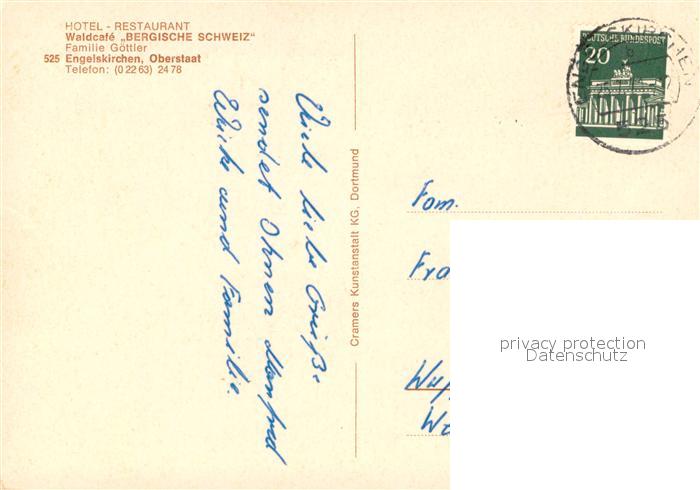 HOTEL - RESTAURANT
Waldcafé „BERGISCHE SCHWEIZ"
Familie Göttler
525 Engelskirchen, Oberstaat
Telefon: (0 22 63) 24 78
Viele liebe Grüße
sendet Ihnen Manfred
und Familie.
Cramers Kunstanstalt KG, Dortmund
DEUTSCHE BUNDESPOST
20
525
Fam.
Fra
Wup
privacy protection
Datenschutz